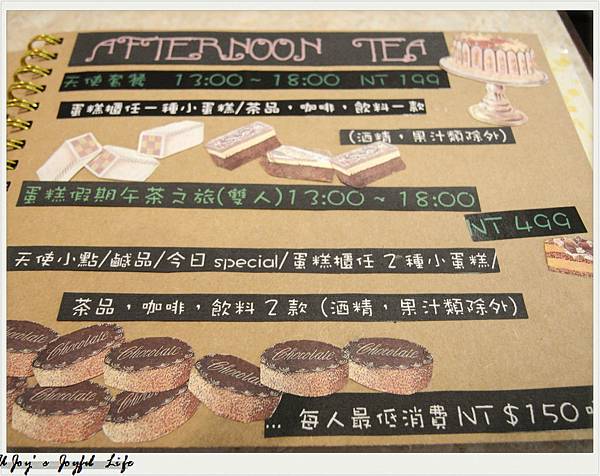 AFTERNOON TEA
天使套餐 13:00~18:00 NT 199
蛋糕櫃任一種小蛋糕/茶品,咖啡,飲料一款
(酒精,果汁類除外)
蛋糕假期午茶之旅(雙人)13:00~18:00
NT 499
天使小點/鹹品/今日special/蛋糕櫃任2種小蛋糕/
茶品,咖啡,飲料2款(酒精,果汁類除外)
Chocolate
Chocolate
Chocolate
Chocolate
Chocolate
... 每人最低消費NT$150
Joy's Joyful Life